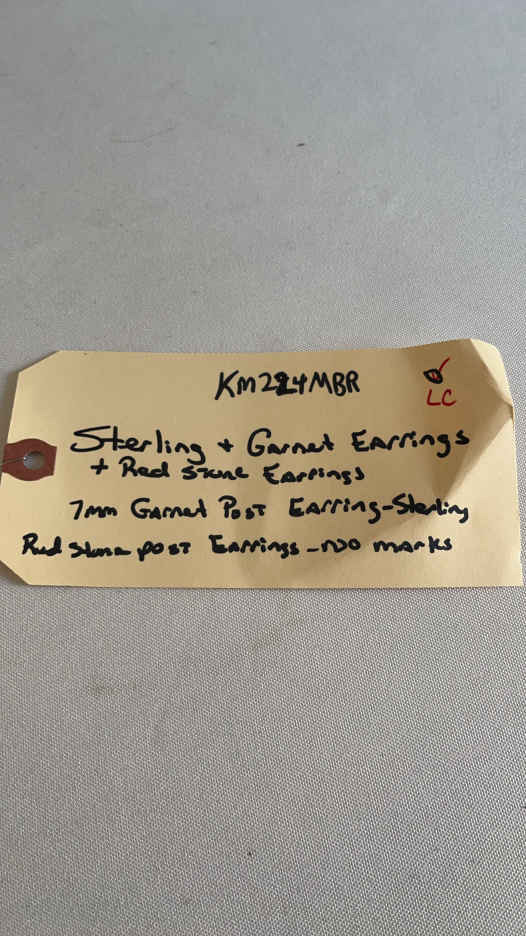 KM224MBR
LC
Sterling + Garnet Earrings
+ Red Stone Earrings
7mm Garnet Post Earring-Sterling
Red Stone post Earrings - no marks